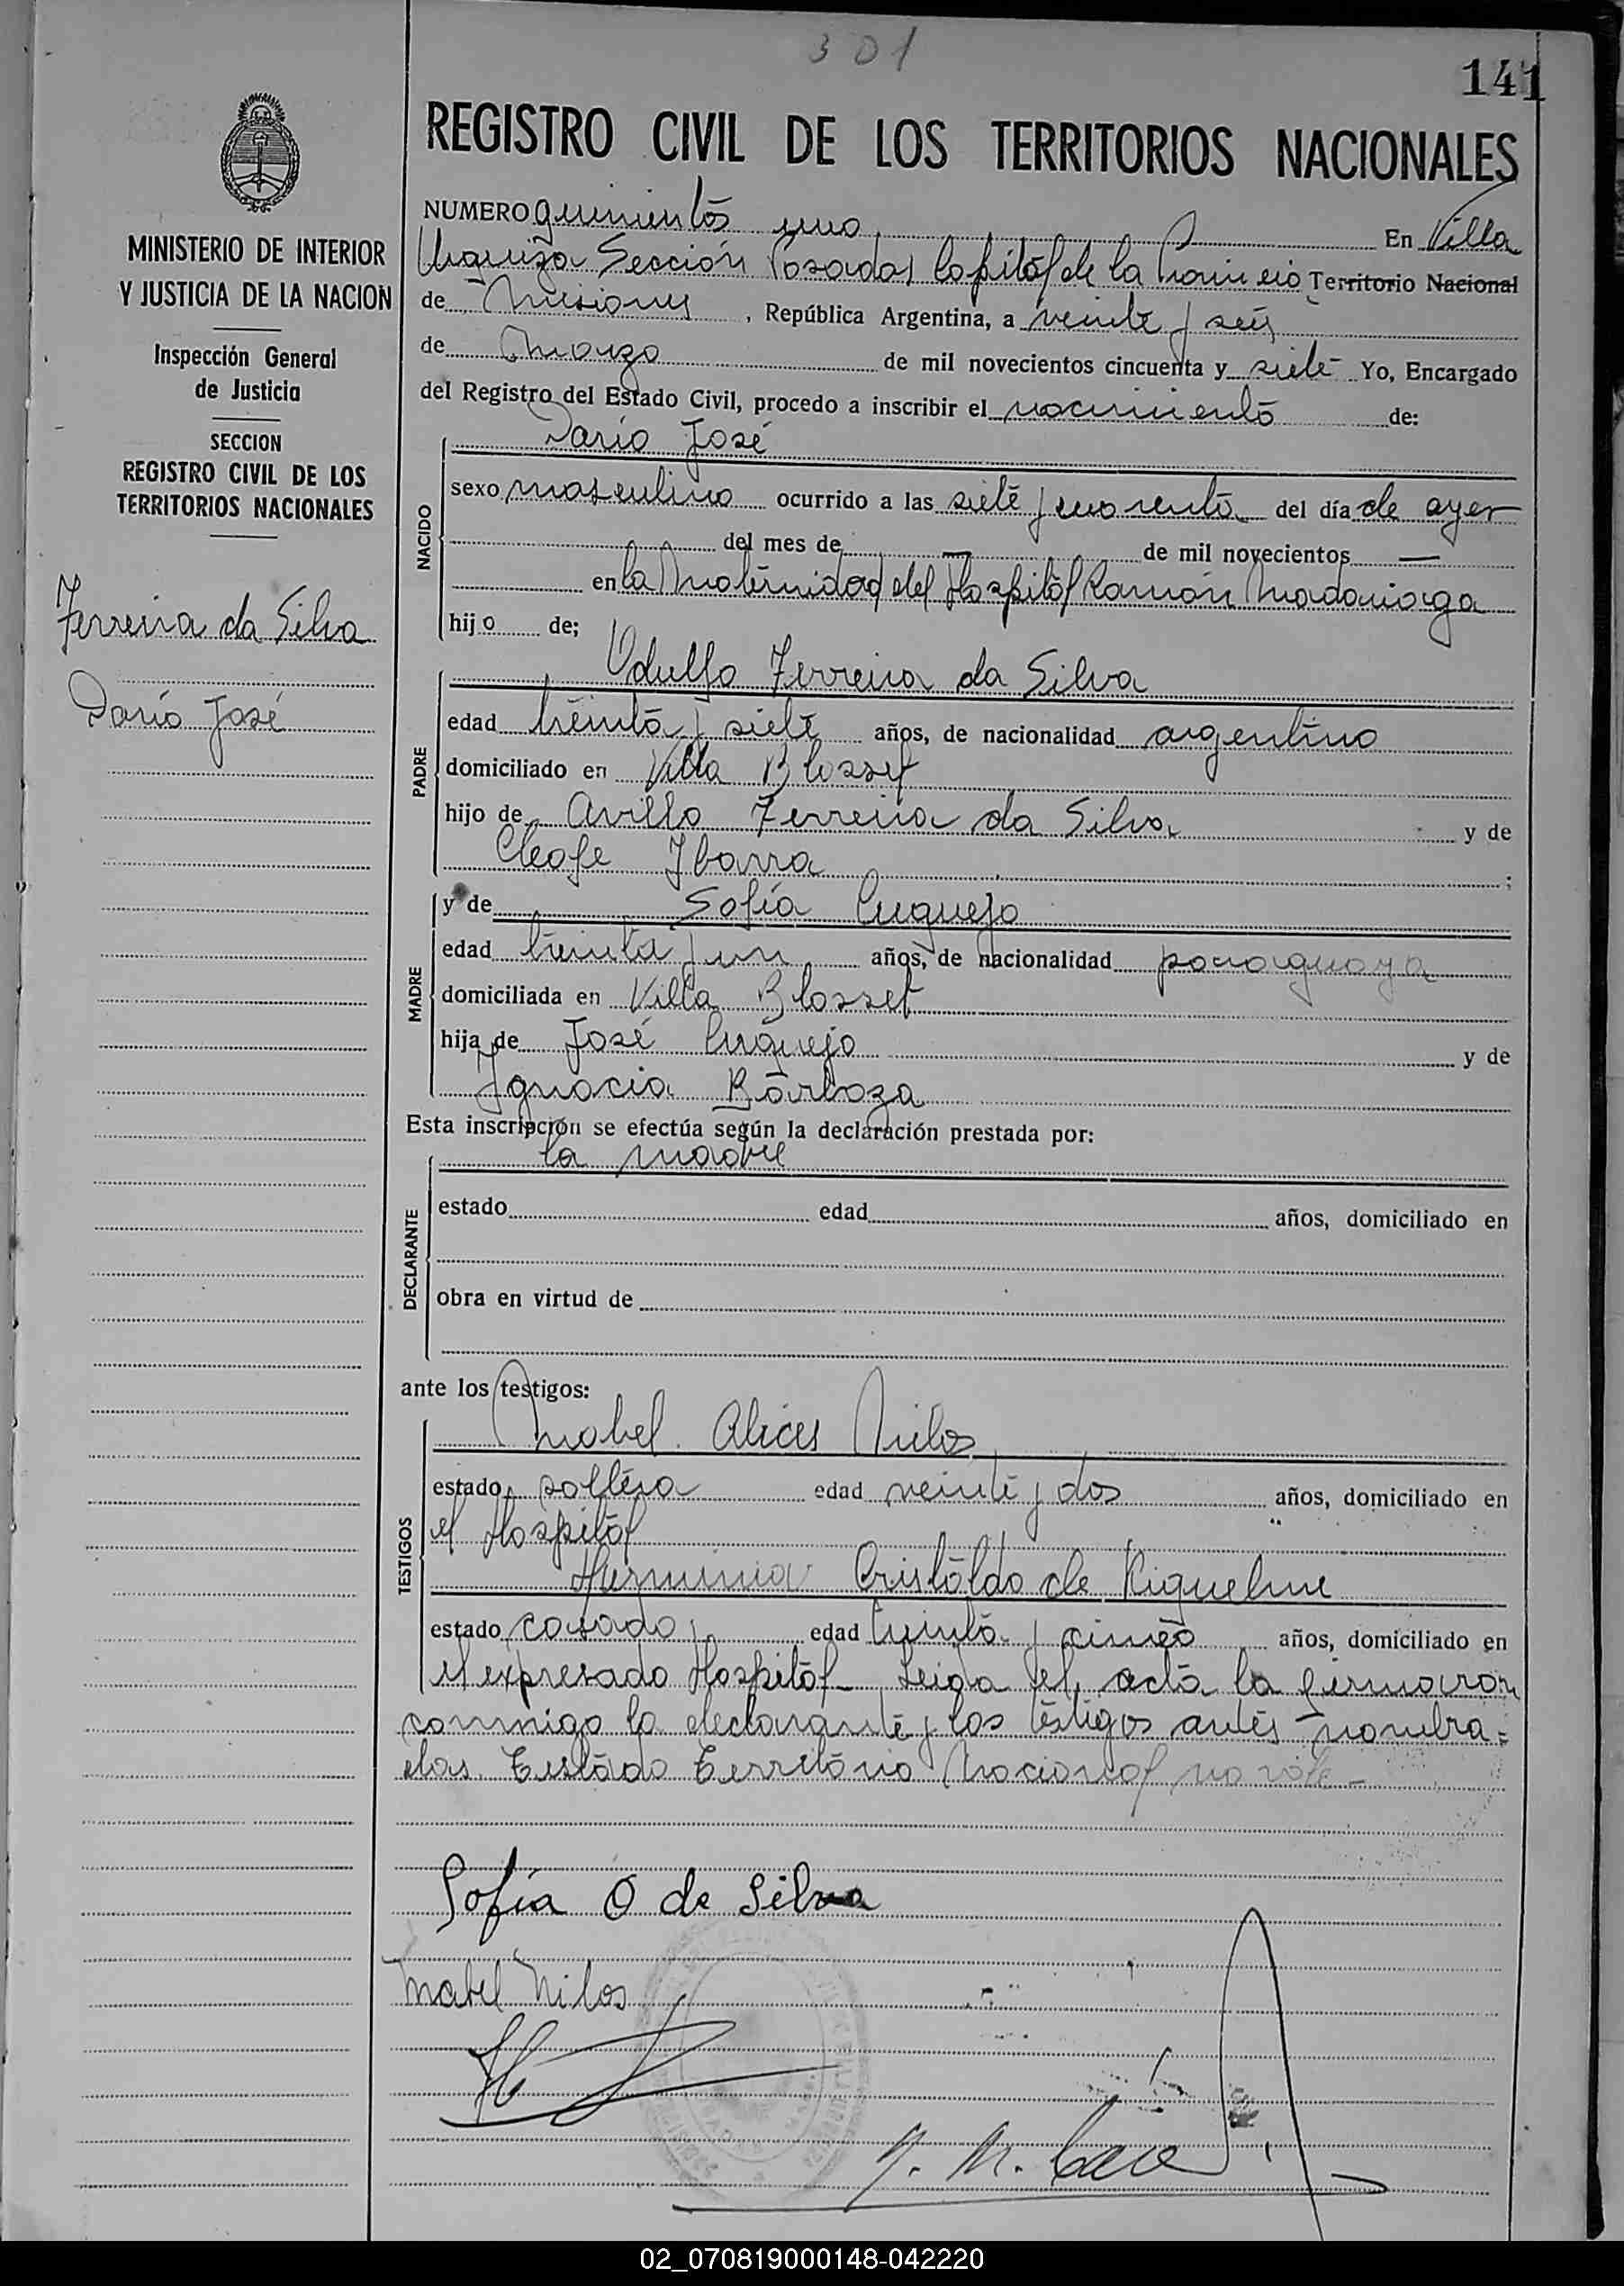 301
141
REGISTRO CIVIL DE LOS TERRITORIOS NACIONALES
MINISTERIO DE INTERIOR
Y JUSTICIA DE LA NACION
Inspección General
de Justicia
SECCION
REGISTRO CIVIL DE LOS
TERRITORIOS NACIONALES
Ferreira da Silva
Darío José
NUMERO quinientos uno En Villa
Urquiza Sección Posadas Capital de la Provincia Territorio Nacional
de Misiones, República Argentina, a veinte y seis
de Marzo de mil novecientos cincuenta y siete Yo, Encargado
del Registro del Estado Civil, procedo a inscribir el nacimiento de:
NACIDO
Darío José
sexo masculino ocurrido a las siete y cuarenta del día de ayer
del mes de — de mil novecientos —
en la Maternidad del Hospital Ramón Madariaga
hijo de;
PADRE
Odulfo Ferreira da Silva
edad treinta y siete años, de nacionalidad argentino
domiciliado en Villa Blosset
hijo de Avilio Ferreira da Silva y de
Cleofe Ibarra ;
MADRE
y de Sofía Cuquejo
edad treinta y un años, de nacionalidad paraguaya
domiciliada en Villa Blosset
hija de José Cuquejo y de
Ignacia Barboza
Esta inscripción se efectúa según la declaración prestada por:
DECLARANTE
la madre
estado edad años, domiciliado en
obra en virtud de
ante los testigos:
TESTIGOS
Mabel Alices Nilos
estado soltera edad veinte y dos años, domiciliado en
el Hospital
Herminia Cristaldo de Riquelme
estado casada edad treinta y cinco años, domiciliado en
el expresado Hospital_ Leida el acta la firmaron
conmigo la declarante y los testigos antes nombra=
dos. Testado Territorio Nacional no vale_
Sofía O de Silva
Mabel Nilos
02_070819000148-042220